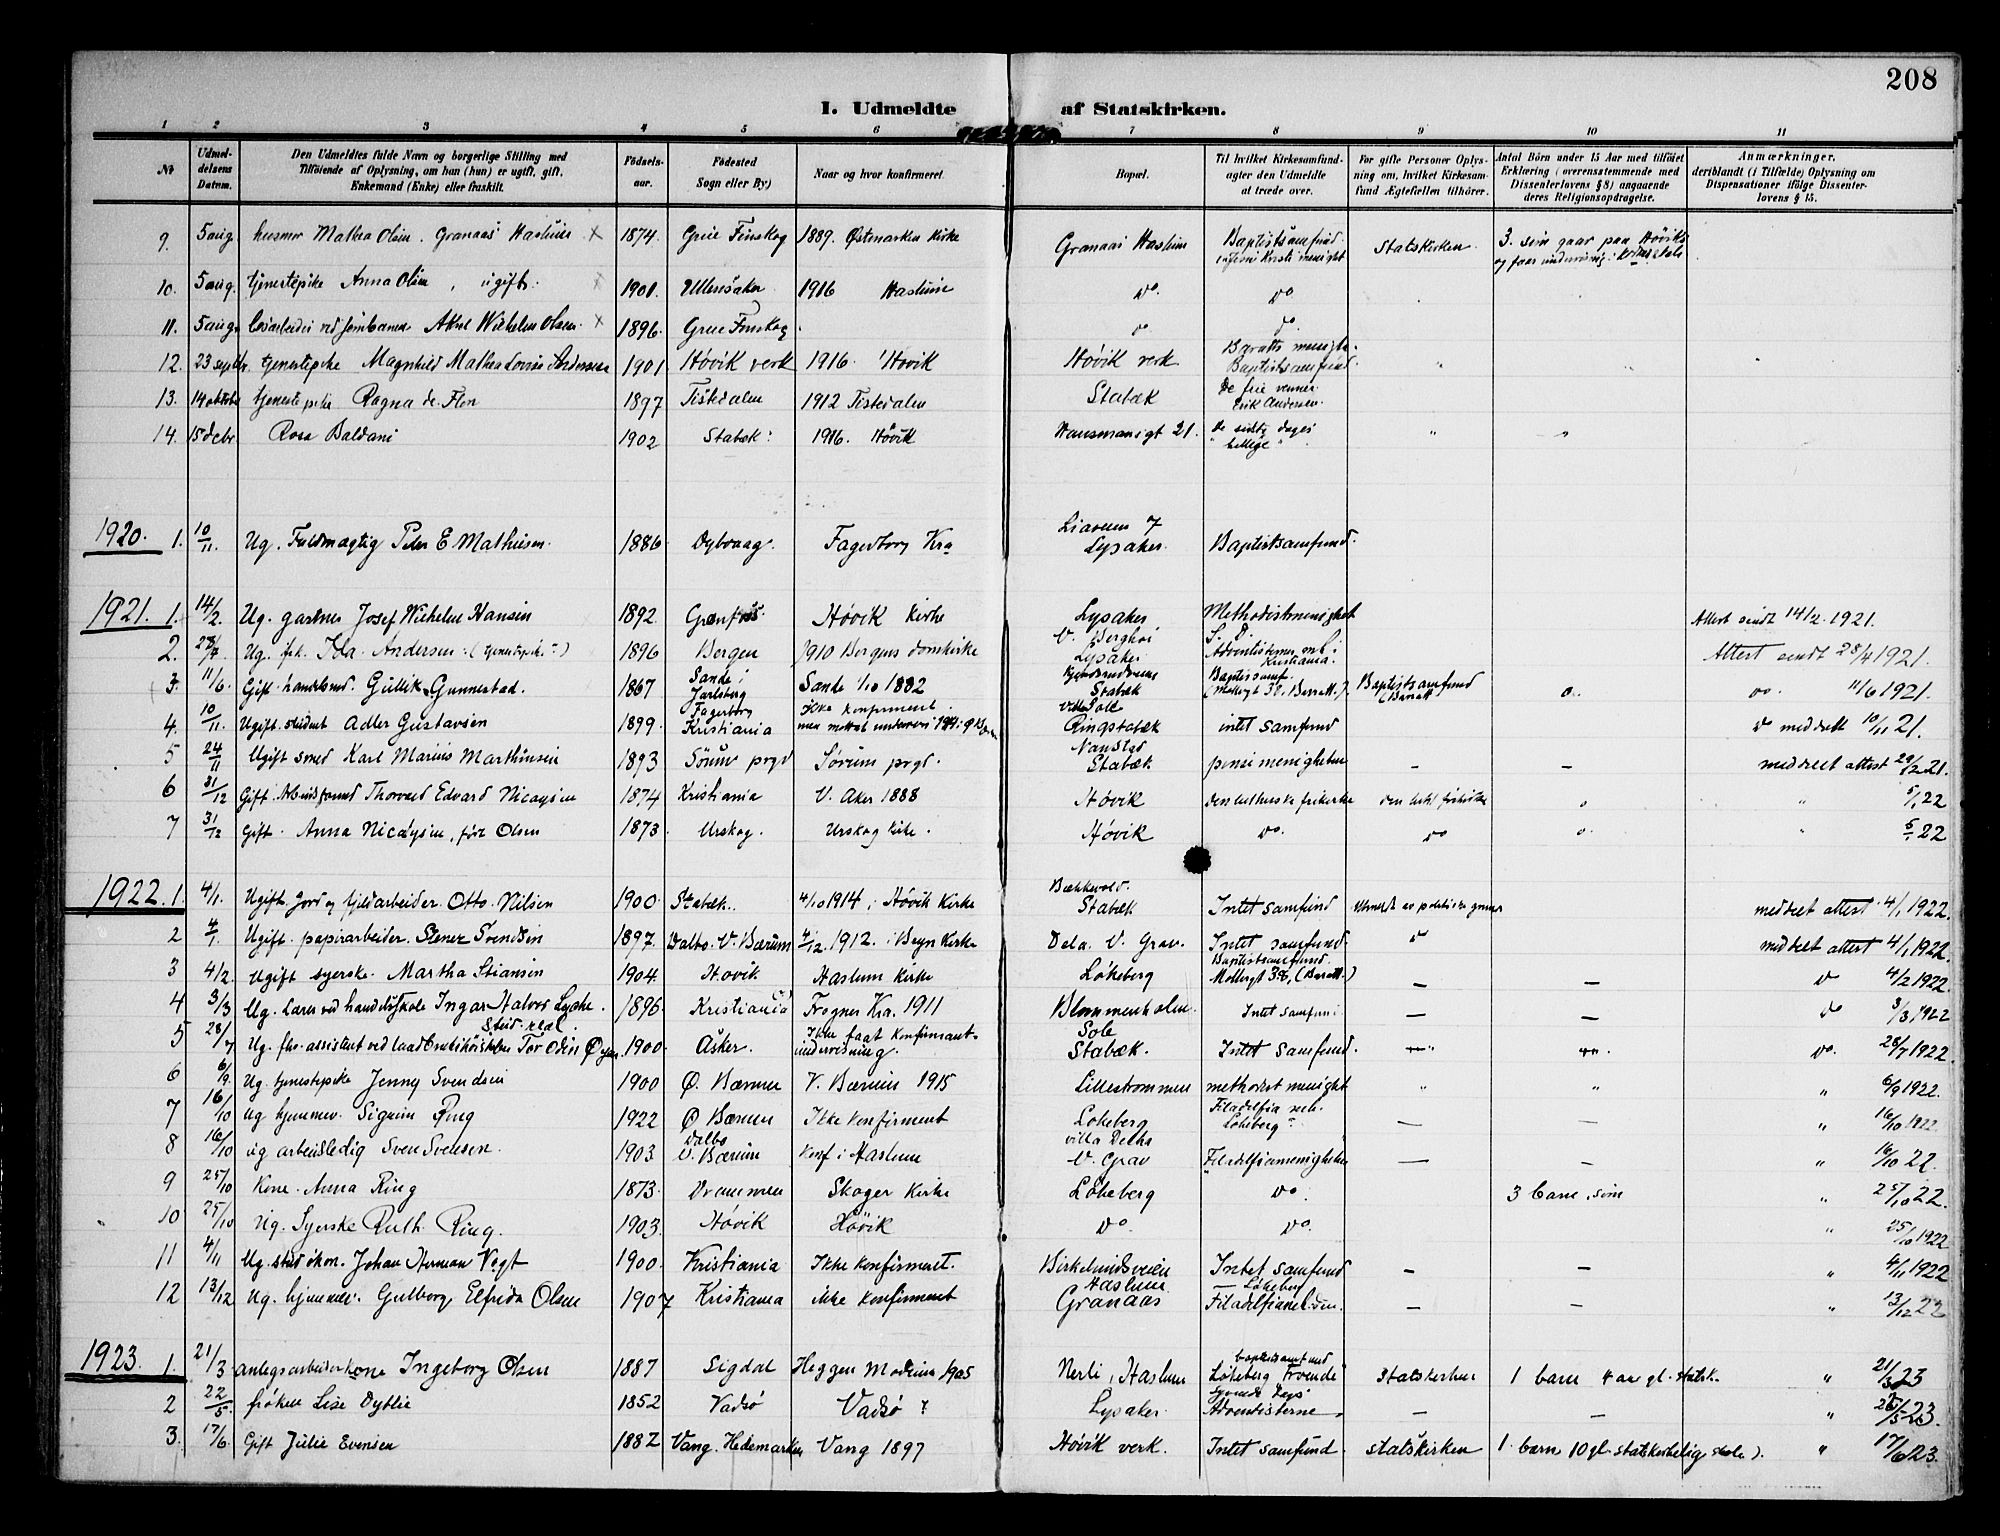 208
I. Udmeldte af Statskirken.
1 2 3 4 5 6 7 8 9 10 11
Nr
Udmeldelsens Datum.
Den Udmeldtes fulde Navn og borgerlige Stilling med Tilføiende af Oplysning, om han (hun) er ugift, gift, Enkemand (Enke) eller fraskilt.
Fødselsaar.
Fødested Sogn eller By)
Naar og hvor konfirmeret
Bopæl.
Til hvilket Kirkesamfund agter den Udmeldte at træde over.
For gifte Personer Oplysning om, hvilket Kirkesamfund Ægtefællen tilhører.
Antal Börn under 15 Aar med tilføiet Erklæring (overensstemmende med Dissenterlovens § 8) angaaende deres Religionsopdragelse.
Anmærkninger. deriblandt (i Tilfælde) Oplysning om Dispensationer ifølge Dissenterlovens § 15.
9. 5 aug. husmor Mathea Olsen. Granaas Haslum x 1874. Grue Finskog 1889. Østmarken Kirke Granaas Haslum Baptistsamfund. Statskirken. 3. som gaar paa Høviks
10. 5 aug. tjenestepike Anna Olsen, ugift. x 1901. Ullensaker 1916 Haslum do. do
11. 5 aug. Akne Wilhelm Olsen. x 1896. Grue Finskog do do.
12. 23 septbr. tjenestepike Magnhild Mathea Lovise Andersen 1901 Høvik verk 1916. Høvik Høvik verk Baratts menigh. Baptistsamfund. " "
13. 14 oktober tjenestepike Ragna de Flon 1897 Tistedalen 1912 Tistedalen Stabæk De frie venner. Erik Andersen.
14. 15 debr Rosa Baldani 1902 Stabæk. 1916. Høvik Hausmanigt 21. De sidste dages " hellige " " "
1920. 1. 10/11. Ug. Fuldmægtig Peder E Mathisen. 1886. Dybvaag. Fagerborg Kra Liaveien 7 Lysaker. Baptistsamfund.
1921. 1. 14/2. Ug. gartner Josef Wilhelm Hansen 1892. Høvik Kirke Lysaker Methodistmenighet Attest sendt 14/2. 1921.
2. 28/4 Ug. frk. Ida Andersen (tjenestepike ?) 1896 Bergen 1910 Bergens domkirke V. Berghoi Lysaker S. D. Adventisternes mh. i Kristiania. Attest sendt 28/4 1921.
3. 11/6. Gift. handelsmd. Gullik Gunnestad. 1867 Sande i Jarlsberg Sande 1/10 1882 Stabæk Baptistsamf. (Møllergt 38. Barratt.) Baptistsamfund (Barratt) o. do. 11/6 1921.
4. 10/11. Ugift. student Adler Gustavsen 1899. Fagerborg Kristiania Ikke konfirmeret men Villa Sole Ringstabæk intet samfund do meddelt 10/11 21.
5 24/11 Ugift smed Karl Marius Marthinsen 1893 Sörum prgd Sörum prgd. Nanstad Stabæk pinsemenigheten – – meddelt attest 29/12 21.
6 31/12 Gift. Thorvald Edvard Nicaysen 1874 Kristiania V. Aker 1888 Høvik den lutherske frikirke den luth frikirke o " 5/1 22
7 31/12 Gift. Anna Nicaysen, født Olsen 1873. Urskog. Urskog Kirke. Høvik do. do o. " 5/1 22
1922. 1. 4/1. Ugift. Jord og fjeldarbeider. Otto. Nilsen 1900. Stabæk. 4/10 1914, i Høvik Kirke Bækkevold. Stabæk Intet samfund meddelt attest 4/1 1922.
2 4/1. Ugift. papirarbeider. Stener Svendsen 1897. Dalbo. V. Bærum 4/12. 1912. i Bryn Kirke Dela. V. Grav. Intet samfund. do meddelt attest 4/1 1922.
3 4/2. Ugift syerske. Martha Stiansen 1904. Høvik Haslum Kirke Løkeberg Baptistsamfund. Møllergt 38, (Baratt.) – – do 4/2 1922.
4 3/3 Ug. Lærer ved handelsskole Ingar Halvor Lyche. 1896. Kristiania Frogner Kra. 1911 Blommenholm. Intet samfund. – – do 3/3 1922
5 28/7 Stud. real. Ug. fhv. assistent ved landbrukshöiskolen Tor Odin Øyen. 1900. Asker. Ikke faat konfirmantundervisning. Sole Stabæk. Intet samfund. do. 28/7 1922.
6 6/9. Ug. tjenestepike Jenny Svendsen 1900 Ø. Bærum V. Bærum 1915 Lillestrommen methodist menighet " " " 6/9 1922.
7 16/10 Ug hjemmev. Sigrun Ring 1922 Ø Bærum Ikke konfirmeret Løkeberg Filadelfia meh. Løkeberg – – " 16/10 1922.
8 16/10 ug arbeidsledig Sven Svensen. 1903. Dalbo V. Bærum Konf i Haslum villa Delha V. Grav Filadelfiamenigheten – – " 16/10 22.
9 25/10 Kone. Anna Ring 1873. Drammen Skoger Kirke Løkeberg do. 3 barn, som " 25/10 22.
10 25/10 Ug. Syerske Ruth. Ring. 1903. Høvik Høvik do. do. " 25/10 1922
11 4/11 Ug. stud. økon. Johan Herman Vogt 1900. Kristiania Ikke konfirmeret. Birkelundsveien Intet samfund – – " 4/11 1922
12 13/12 Ug. hjemmev. Gulborg Elfrida Olsen 1907 Kristiania ikke konfirmeret Haslum Granaas Løkeberg – – " 13/12 22
1923. 1. 21/3 anlegsarbeiderkone Ingeborg Olsen 1887 Sigdal Heggen Modum 1905 Nerli, Haslum baptistsamfund Løkeberg Troende Statskirken 1 barn 4 aar gl. statsk. " 21/3 23
2 22/5. frøken Lise Dyblie 1852 Vadsø Vadsø ? Lysaker. Syvende Dags Adventisterne. – – "
3. 17/6. Gift Julie Evensen 1882 Vang. Hedemarken Vang 1897 Høvik verk. Intet samfund. statskirken 1 barn 10 gl. statskirkelig skole). " 17/6 23.